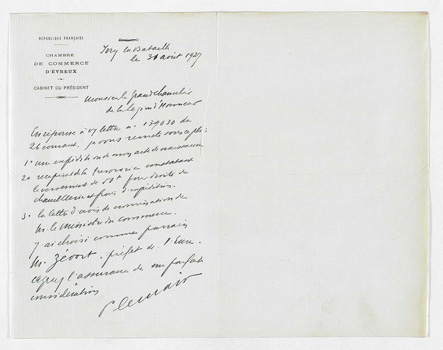 RÉPUBLIQUE FRANÇAISE
CHAMBRE
DE COMMERCE
D'ÉVREUX
CABINET DU PRÉSIDENT
Ivry la Bataille
le 31 août 1927
Monsieur le Grand Chancelier
de la Légion d'Honneur
En réponse à v/ lettre n° 139030 du
26 courant, je vous remets sous pli:
1° une expédition de mon acte de naissance
2° récépissé de constatant
le versement de pour droits de
chancellerie et frais d'expédition.
3° la lettre d'avis de nomination de
M. le ministre du commerce.
J'ai choisi comme parrain
M. préfet de l'Eure.
Agréez l'assurance de ma parfaite
considération